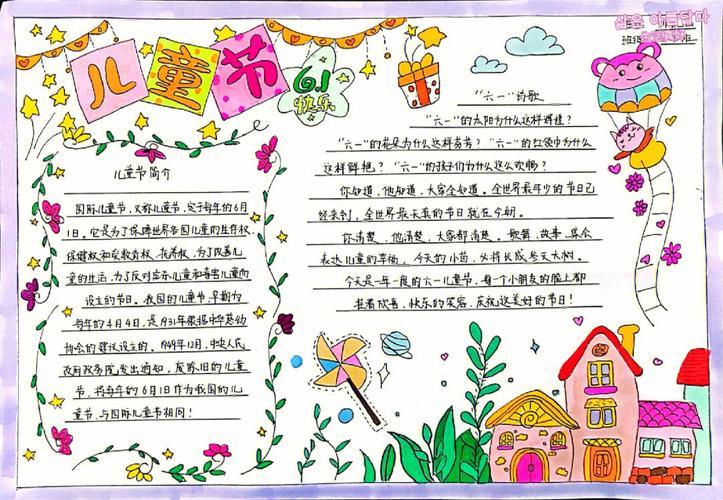 儿童节
6.1
快乐
儿童节简介
国际儿童节,又称儿童节,定于每年的6月
1日。它是为了保障世界各国儿童的生存权、
保健权和受教育权、抚养权,为了改善儿
童的生活,为了反对虐杀儿童和毒害儿童而
设立的节日。我国的儿童节,早期为
每年的4月4日,是1931年根据中华慈幼
协会的建议设立的。1949年12月,中央人民
政府政务院发出通知,废除旧的儿童
节,将每年的6月1日作为我国的儿
童节,与国际儿童节相同!
班级
"六一"诗歌
"六一"的太阳为什么这样辉煌?
"六一"的花朵为什么这样芬芳?"六一"的红领巾为什么
这样鲜艳?"六一"的孩子们为什么这么欢畅?
你知道,他知道,大家全知道。全世界最年少的节日已
经来到,全世界最天真的节日就在今朝。
你清楚,他清楚,大家都清楚。歌舞、故事、集会
表达儿童的幸福。今天的小苗,必将长成参天大树。
今天是一年一度的六一儿童节,每一个小朋友的脸上都
挂着欣喜、快乐的笑容,庆祝这美好的节日!